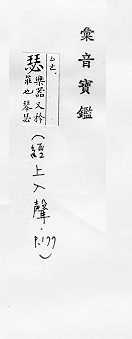 彙音寶鑑
瑟 樂器又矜
莊也琴瑟
(經上入聲．P.177)